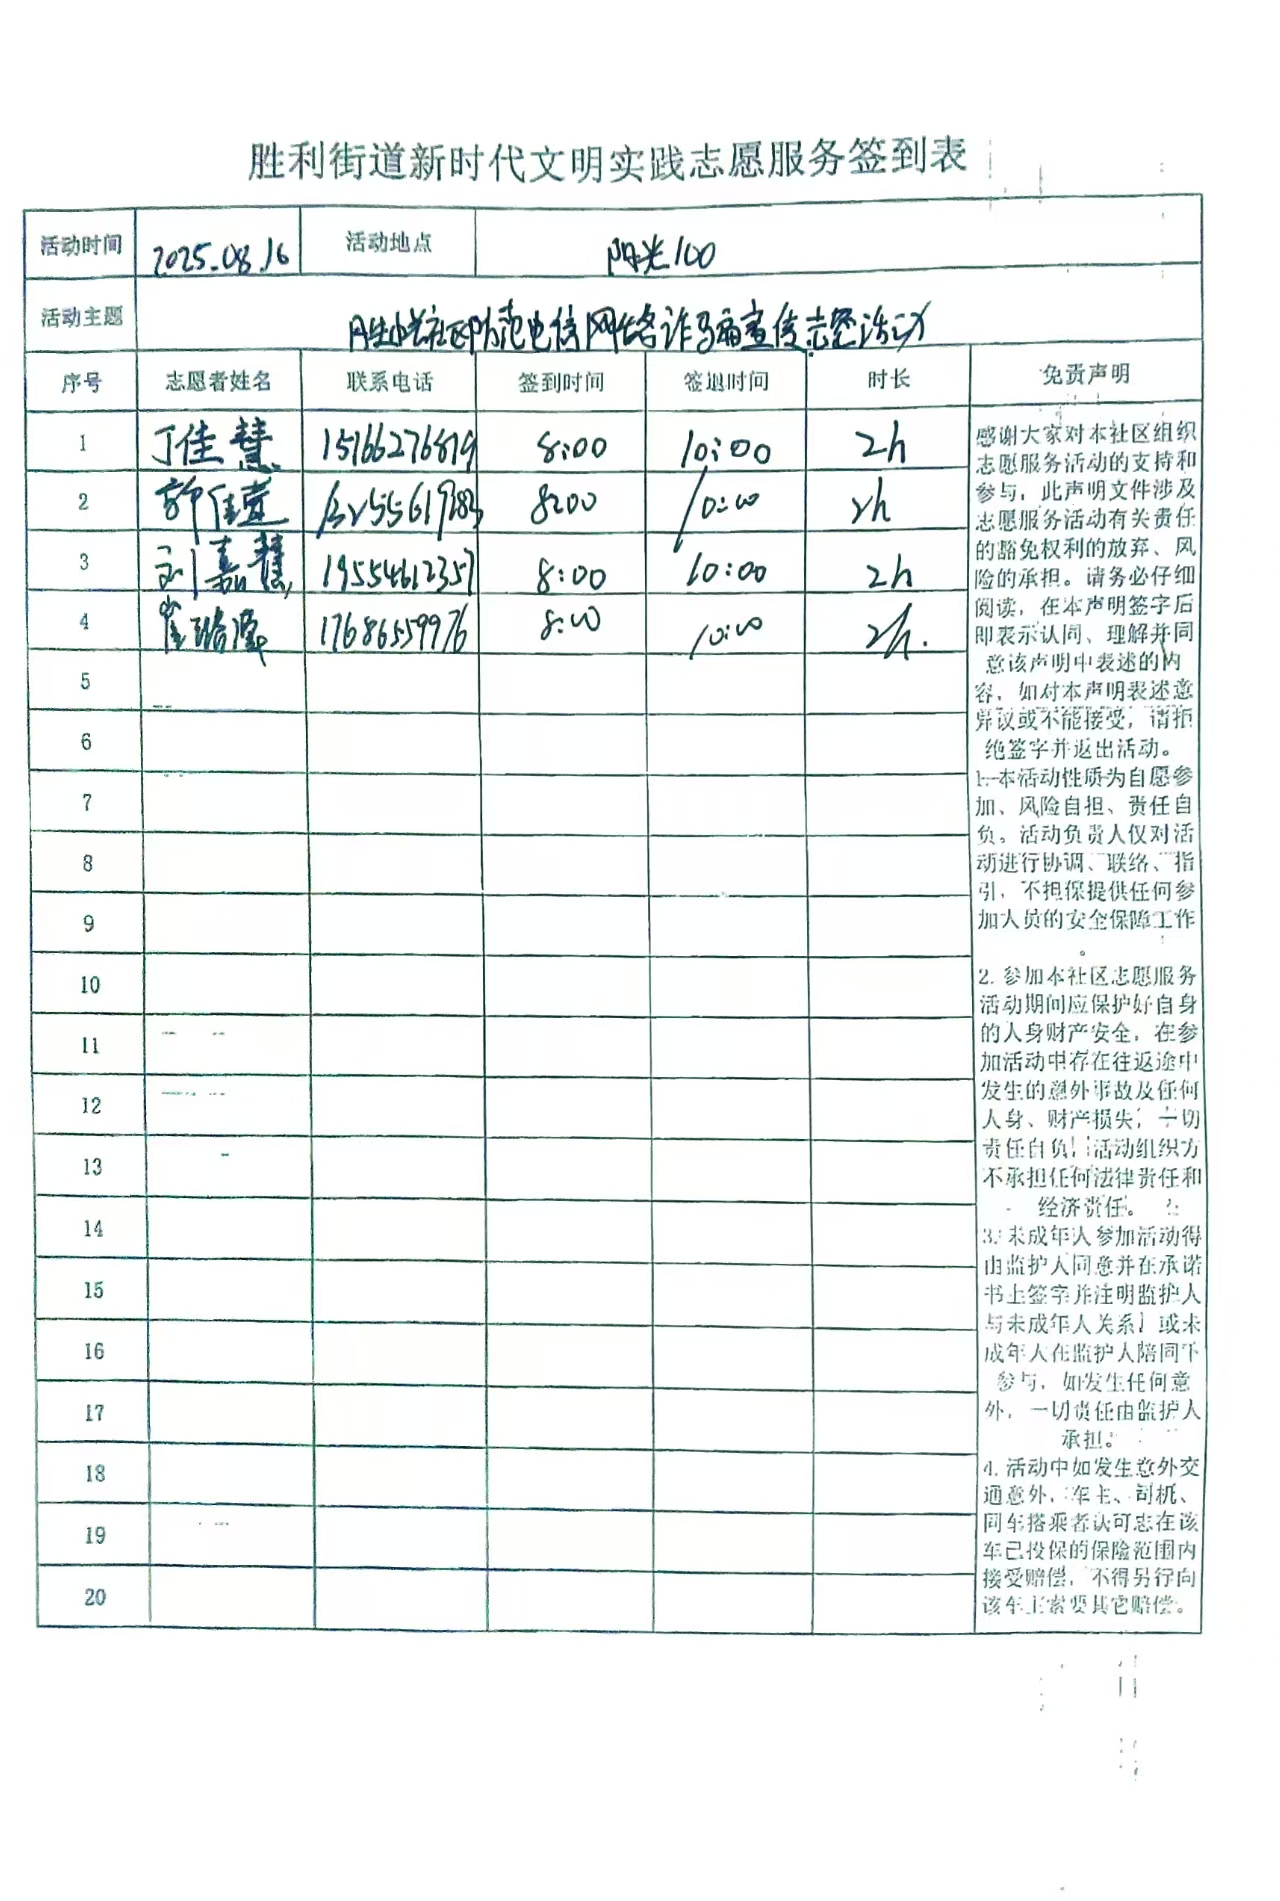 胜利街道新时代文明实践志愿服务签到表
活动时间 2025.08.16 活动地点 阳光100
活动主题 胜兴社区防范电信网络诈骗宣传志愿活动
序号 志愿者姓名 联系电话 签到时间 签退时间 时长 免责声明
1 丁佳慧 15166276819 8:00 10:00 2h
2 8:00 10:00 2h
3 刘嘉慧 19554612357 8:00 10:00 2h
4 崔 17686559976 8:00 10:00 2h.
5
6
7
8
9
10
11
12
13
14
15
16
17
18
19
20
感谢大家对本社区组织
志愿服务活动的支持和
参与，此声明文件涉及
志愿服务活动有关责任
的豁免权利的放弃、风
险的承担。请务必仔细
阅读，在本声明签字后
即表示认同、理解并同
意该声明中表述的内
容，如对本声明表述意
异议或不能接受，请拒
绝签字并返出活动。
1.本活动性质为自愿参
加、风险自担、责任自
负。活动负责人仅对活
动进行协调、联络、指
引，不担保提供任何参
加人员的安全保障工作
。
2. 参加本社区志愿服务
活动期间应保护好自身
的人身财产安全，在参
加活动中存在往返途中
发生的意外事故及任何
人身、财产损失，一切
责任自负，活动组织方
不承担任何法律责任和
经济责任。
3. 未成年人参加活动得
由监护人同意并在承诺
书上签字并注明监护人
与未成年人关系，或未
成年人在监护人陪同下
参与，如发生任何意
外，一切责任由监护人
承担。
4. 活动中如发生意外交
通意外，车主、司机、
同车搭乘者认可志在该
车已投保的保险范围内
接受赔偿，不得另行向
该车主索要其它赔偿。